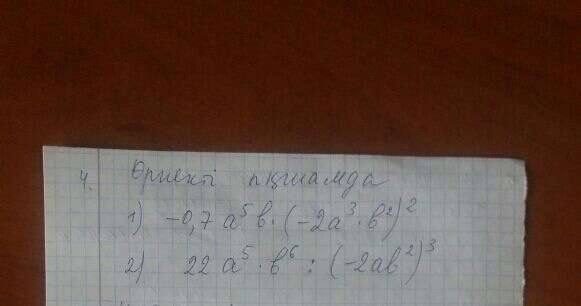 4. Өрнекті ықшамда
1) -0,7 a⁵ b · (-2a³ · b²)²
2) 22 a⁵ · b⁶ : (-2ab²)³